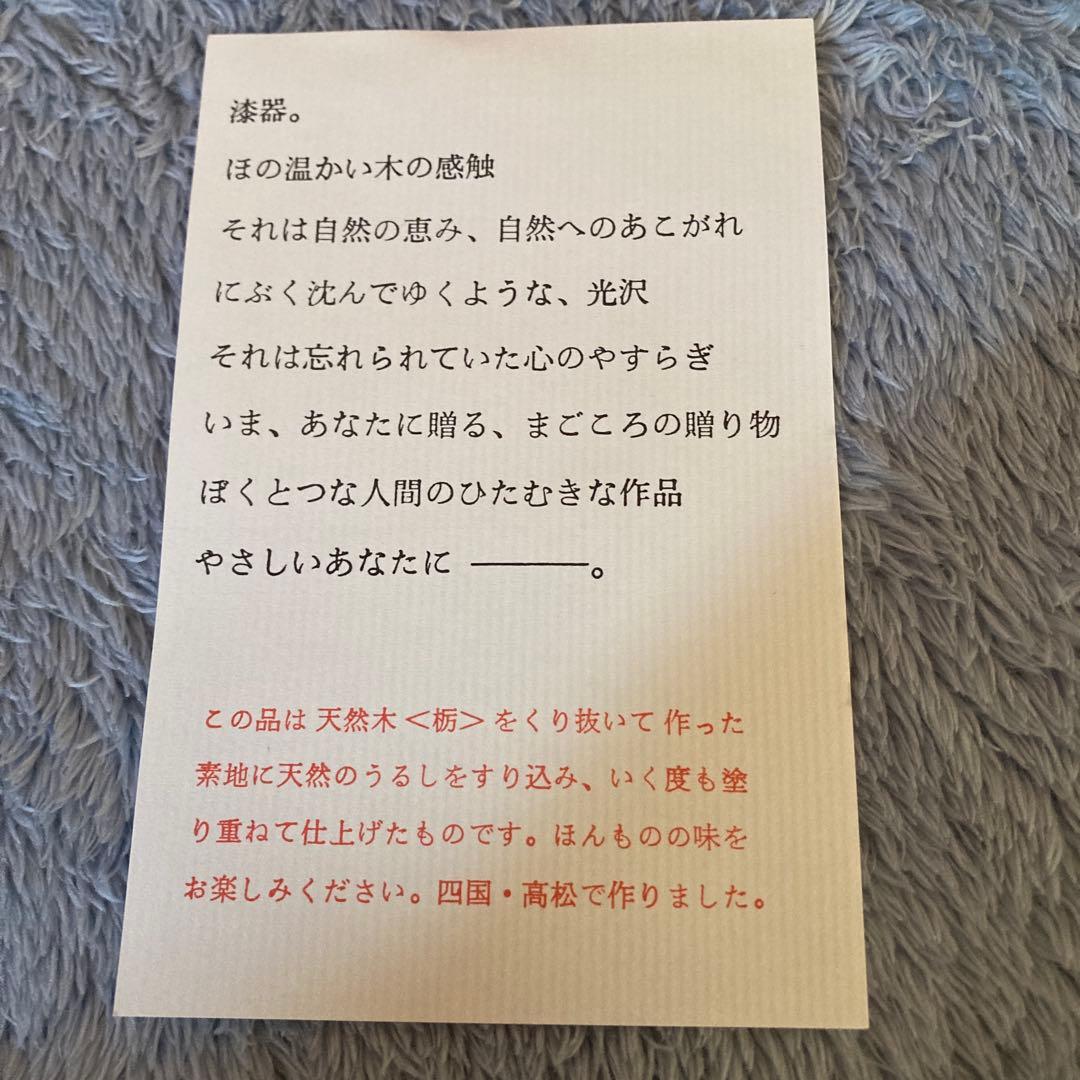 漆器。
ほの温かい木の感触
それは自然の恵み、自然へのあこがれ
にぶく沈んでゆくような、光沢
それは忘れられていた心のやすらぎ
いま、あなたに贈る、まごころの贈り物
ぼくとつな人間のひたむきな作品
やさしいあなたに ────。
この品は 天然木＜栃＞をくり抜いて 作った
素地に天然のうるしをすり込み、いく度も塗
り重ねて仕上げたものです。ほんものの味を
お楽しみください。四国・高松で作りました。